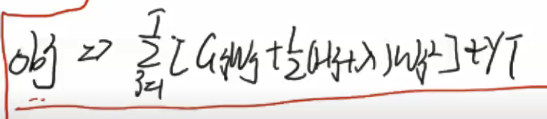 obj => \sum_{j=1}^{T} [G_j w_j + \frac{1}{2}(H_j + λ) w_j^2] + γT